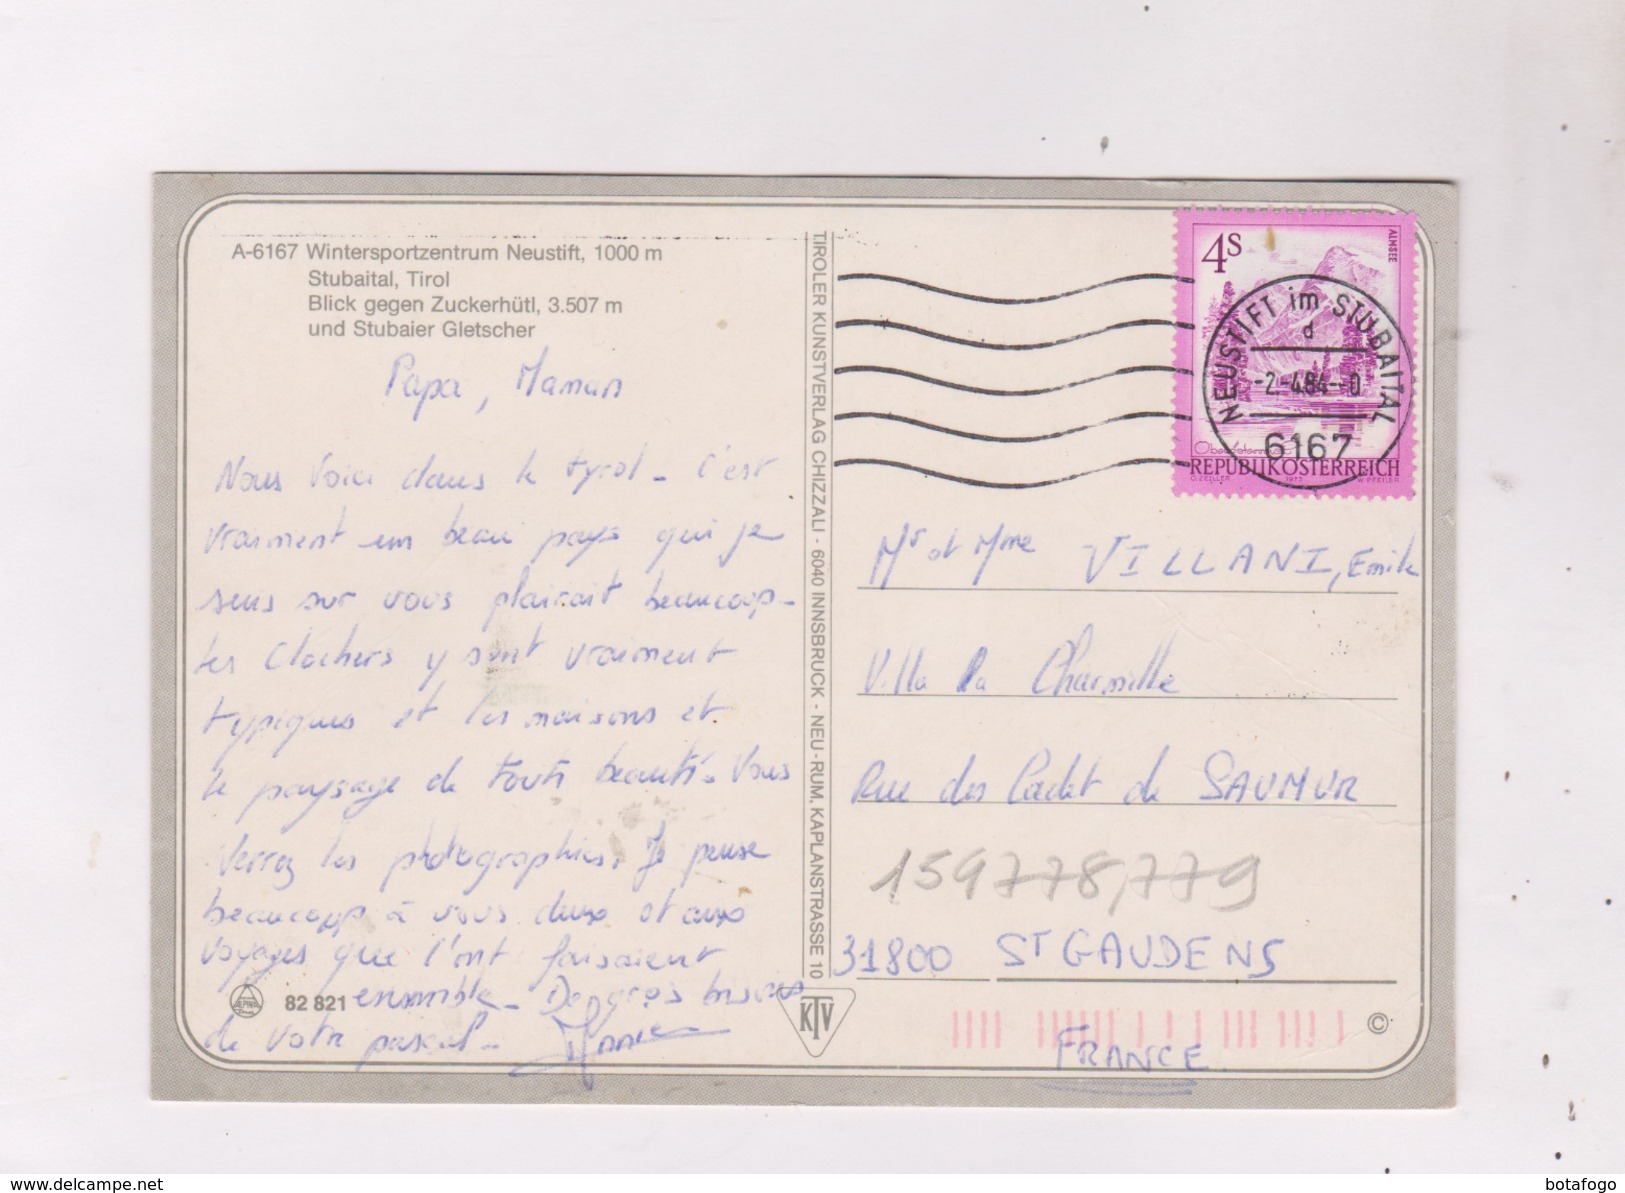 A-6167 Wintersportzentrum Neustift, 1000 m
Stubaital, Tirol
Blick gegen Zuckerhütl, 3.507 m
und Stubaier Gletscher
Papa, Maman
Nous voici dans le tyrol - C'est
vraiment un beau pays qui je
sens sur vous plairait beaucoup -
les clochers y sont vraiment
typiques et les maisons et
le paysage de toute beauté. Vous
verrez les photographies. Je pense
beaucoup à vous deux et aux
voyages que l'ont faisaient
ensemble - De gros bisous
de votre pascal -
82 821
TIROLER KUNSTVERLAG CHIZZALI - 6040 INNSBRUCK - NEU-RUM, KAPLANSTRASSE 10
KTV
4S
ALMSEE
NEUSTIFT im STUBAITAL
d
-2.-4.84--0
6167
REPUBLIK ÖSTERREICH
O. ZEILLER 1973 W. PFEILER
Mr et Mme VILLANI, Emile
Villa la Charmille
Rue des Cadet de SAUMUR
159778,779
31800 ST GAUDENS
FRANCE
©
delcampe.net
botafogo